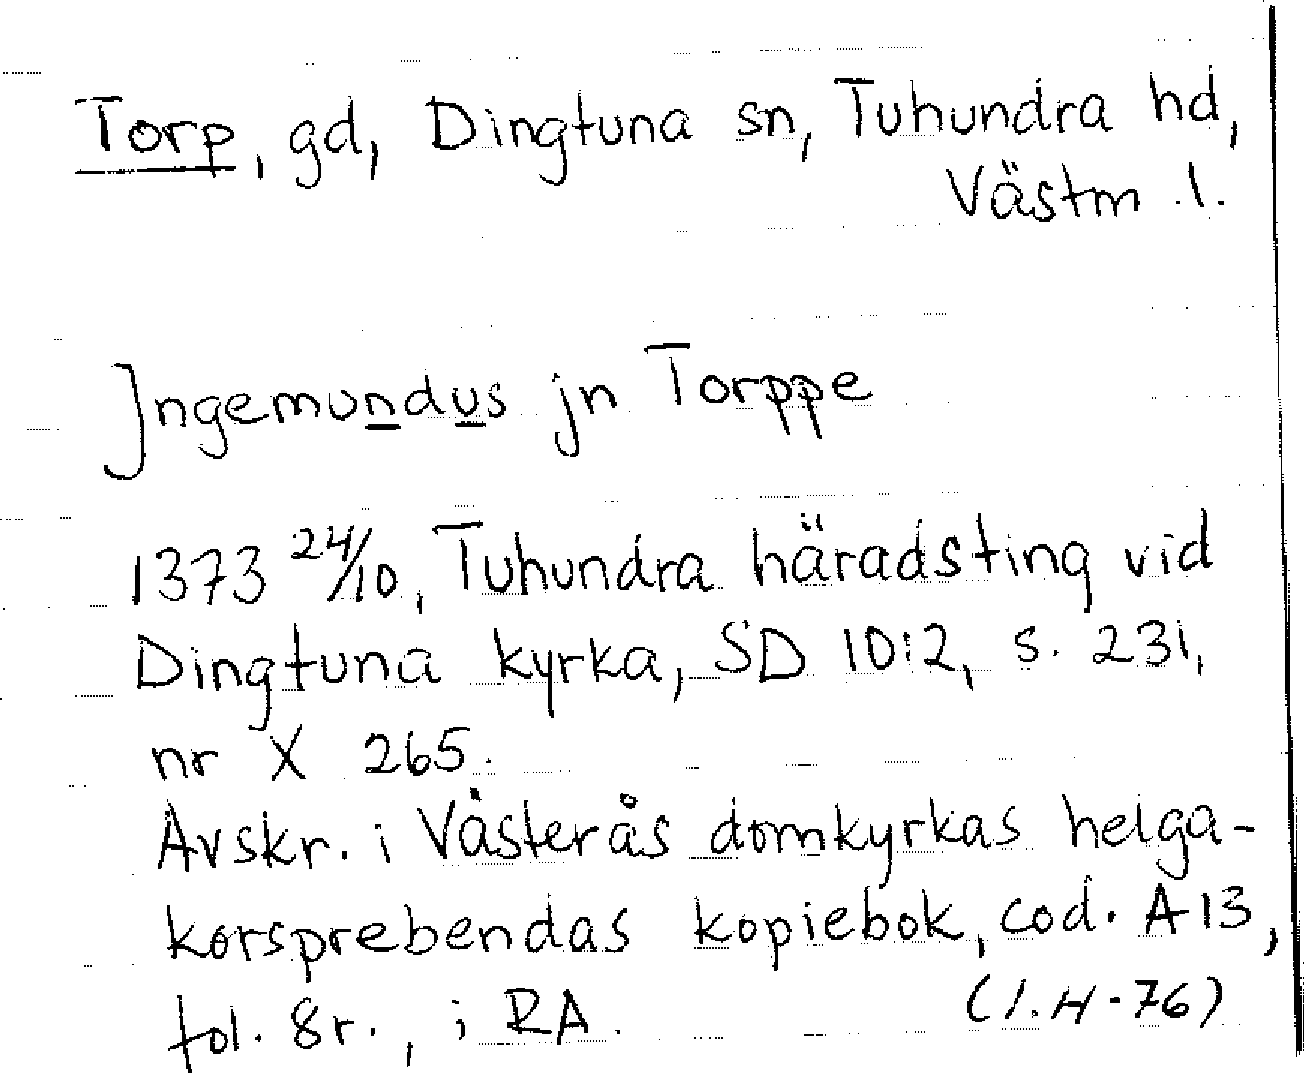 Torp, gd, Dingtuna sn, Tuhundra hd,
Västm. l.
Jngemundus jn Torppe
1373 24/10, Tuhundra häradsting vid
Dingtuna kyrka, SD 10:2, s. 231,
nr X 265.
Avskr. i Västerås domkyrkas helga-
korsprebendas kopiebok, cod. A 13,
fol. 8r., i RA.
(I.H-76)